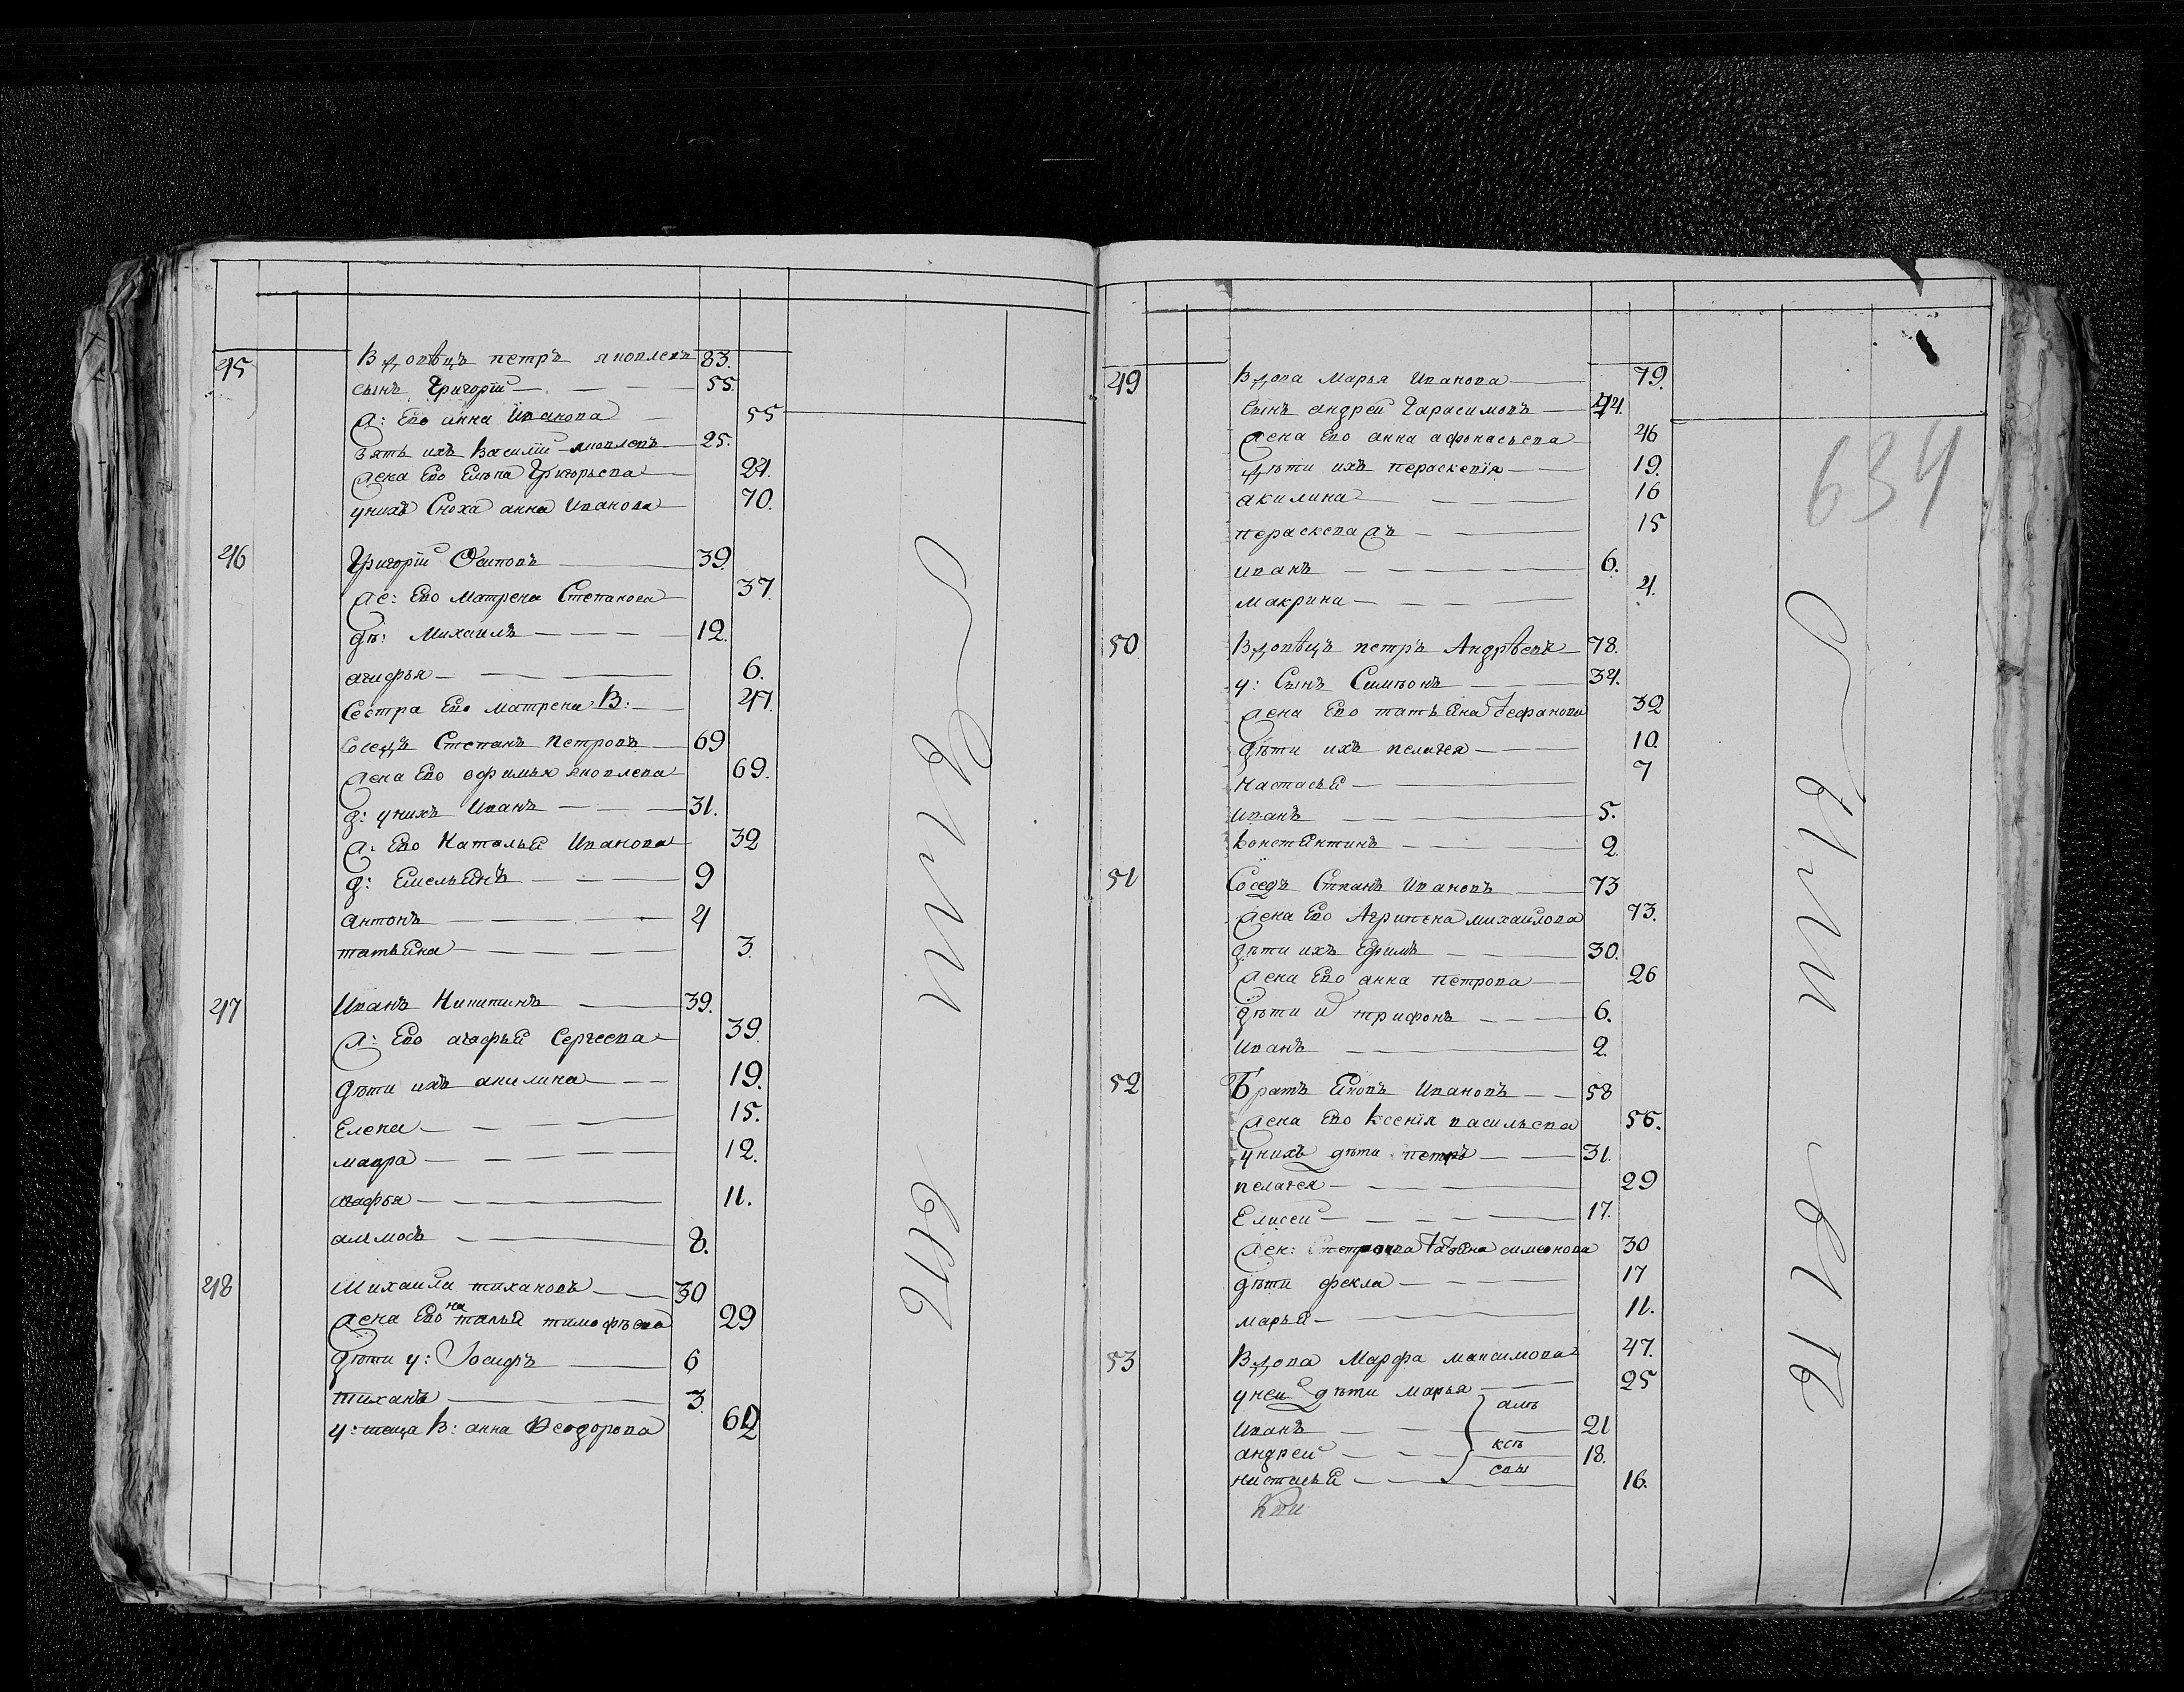 45 Вдовѣцъ петръ яковлевъ 83.
сынъ Григорїй 55.
ж: Ево анна Иванова 55
зять ихъ Василїй яковлевъ 25.
жена Ево Елѣна Григорьева 24.
унихъ Сноха анна Иванова 70.
46 Григорїй Осиповъ 39.
же: Ево Матрена Степанова 37.
дѣ: Михаилъ 12.
агафья 6.
Сестра Ево матрена В: 47.
Соседъ Степанъ Петровъ 69
жена Ево офимья яковлева 69.
д: унихъ Иванъ 31.
ж: Ево Наталья Иванова 32
д: Емельянъ 9
антонъ 4
татьяна 3.
47 Иванъ Никитинъ 39.
ж: Ево агафья Сергеева 39.
дѣти ихъ акилина 19.
Елена 15.
мавра 12.
агафья 11.
амъмосъ 8.
48 Михаила тихановъ 30
жена Ево наталья тимофѣева 29
дѣти у: Іосифъ 6
тиханъ 3.
у: теща В: анна Феодорова 62
Овыи
634
49 Вдова Марья Иванова 79.
Сынъ андрей Гарасимовъ 44.
жена Ево анна афонасьева 46
дѣти ихъ перасковїя 19.
акилина 16
15
иванъ 6.
макрина 4.
50 Вдовѣцъ петръ Андрѣевъ 78.
у: Сынъ Симѣонъ 34.
жена Ево татьяна Стефанова 32
дѣти ихъ пелагея 10.
Настасья 7
Иванъ 5.
Констянтинъ 2.
51 Соседъ Степанъ Ивановъ 73
жена Ево Агрипена михаилова 73.
дѣти ихъ Ефимъ 30.
жена Ево анна петрова 26
дѣти и трифонъ 6.
Иванъ 2.
52 Братъ Яковъ Ивановъ 58
жена Ево Ксенїя васильева 56.
унихъ дѣти петръ 31.
пелагея 29
Елисей 17.
жен: петрова татьяна симеонова 30
дѣти фекла 17
марья 11.
53 Вдова Марфа максимова 47.
уней дѣти марья 25
Иванъ 21
андрей 18.
настасья 16.